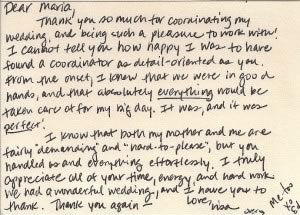 Dear Maria,
Thank you so much for coordinating my
wedding, and being such a pleasure to work with!
I cannot tell you how happy I was to have
found a coordinator as detail-oriented as you.
From the onset, I knew that we were in good
hands, and that absolutely everything would be
taken care of for my big day. It was, and it was
perfect!
I know that both my mother and me are
fairly "demanding" and "hard-to-please", but you
handled us and everything effortlessly. I truly
appreciate all of your time, energy, and hard work.
We had a wonderful wedding, and I have you to
thank. Thank you again!
Love,
Me too